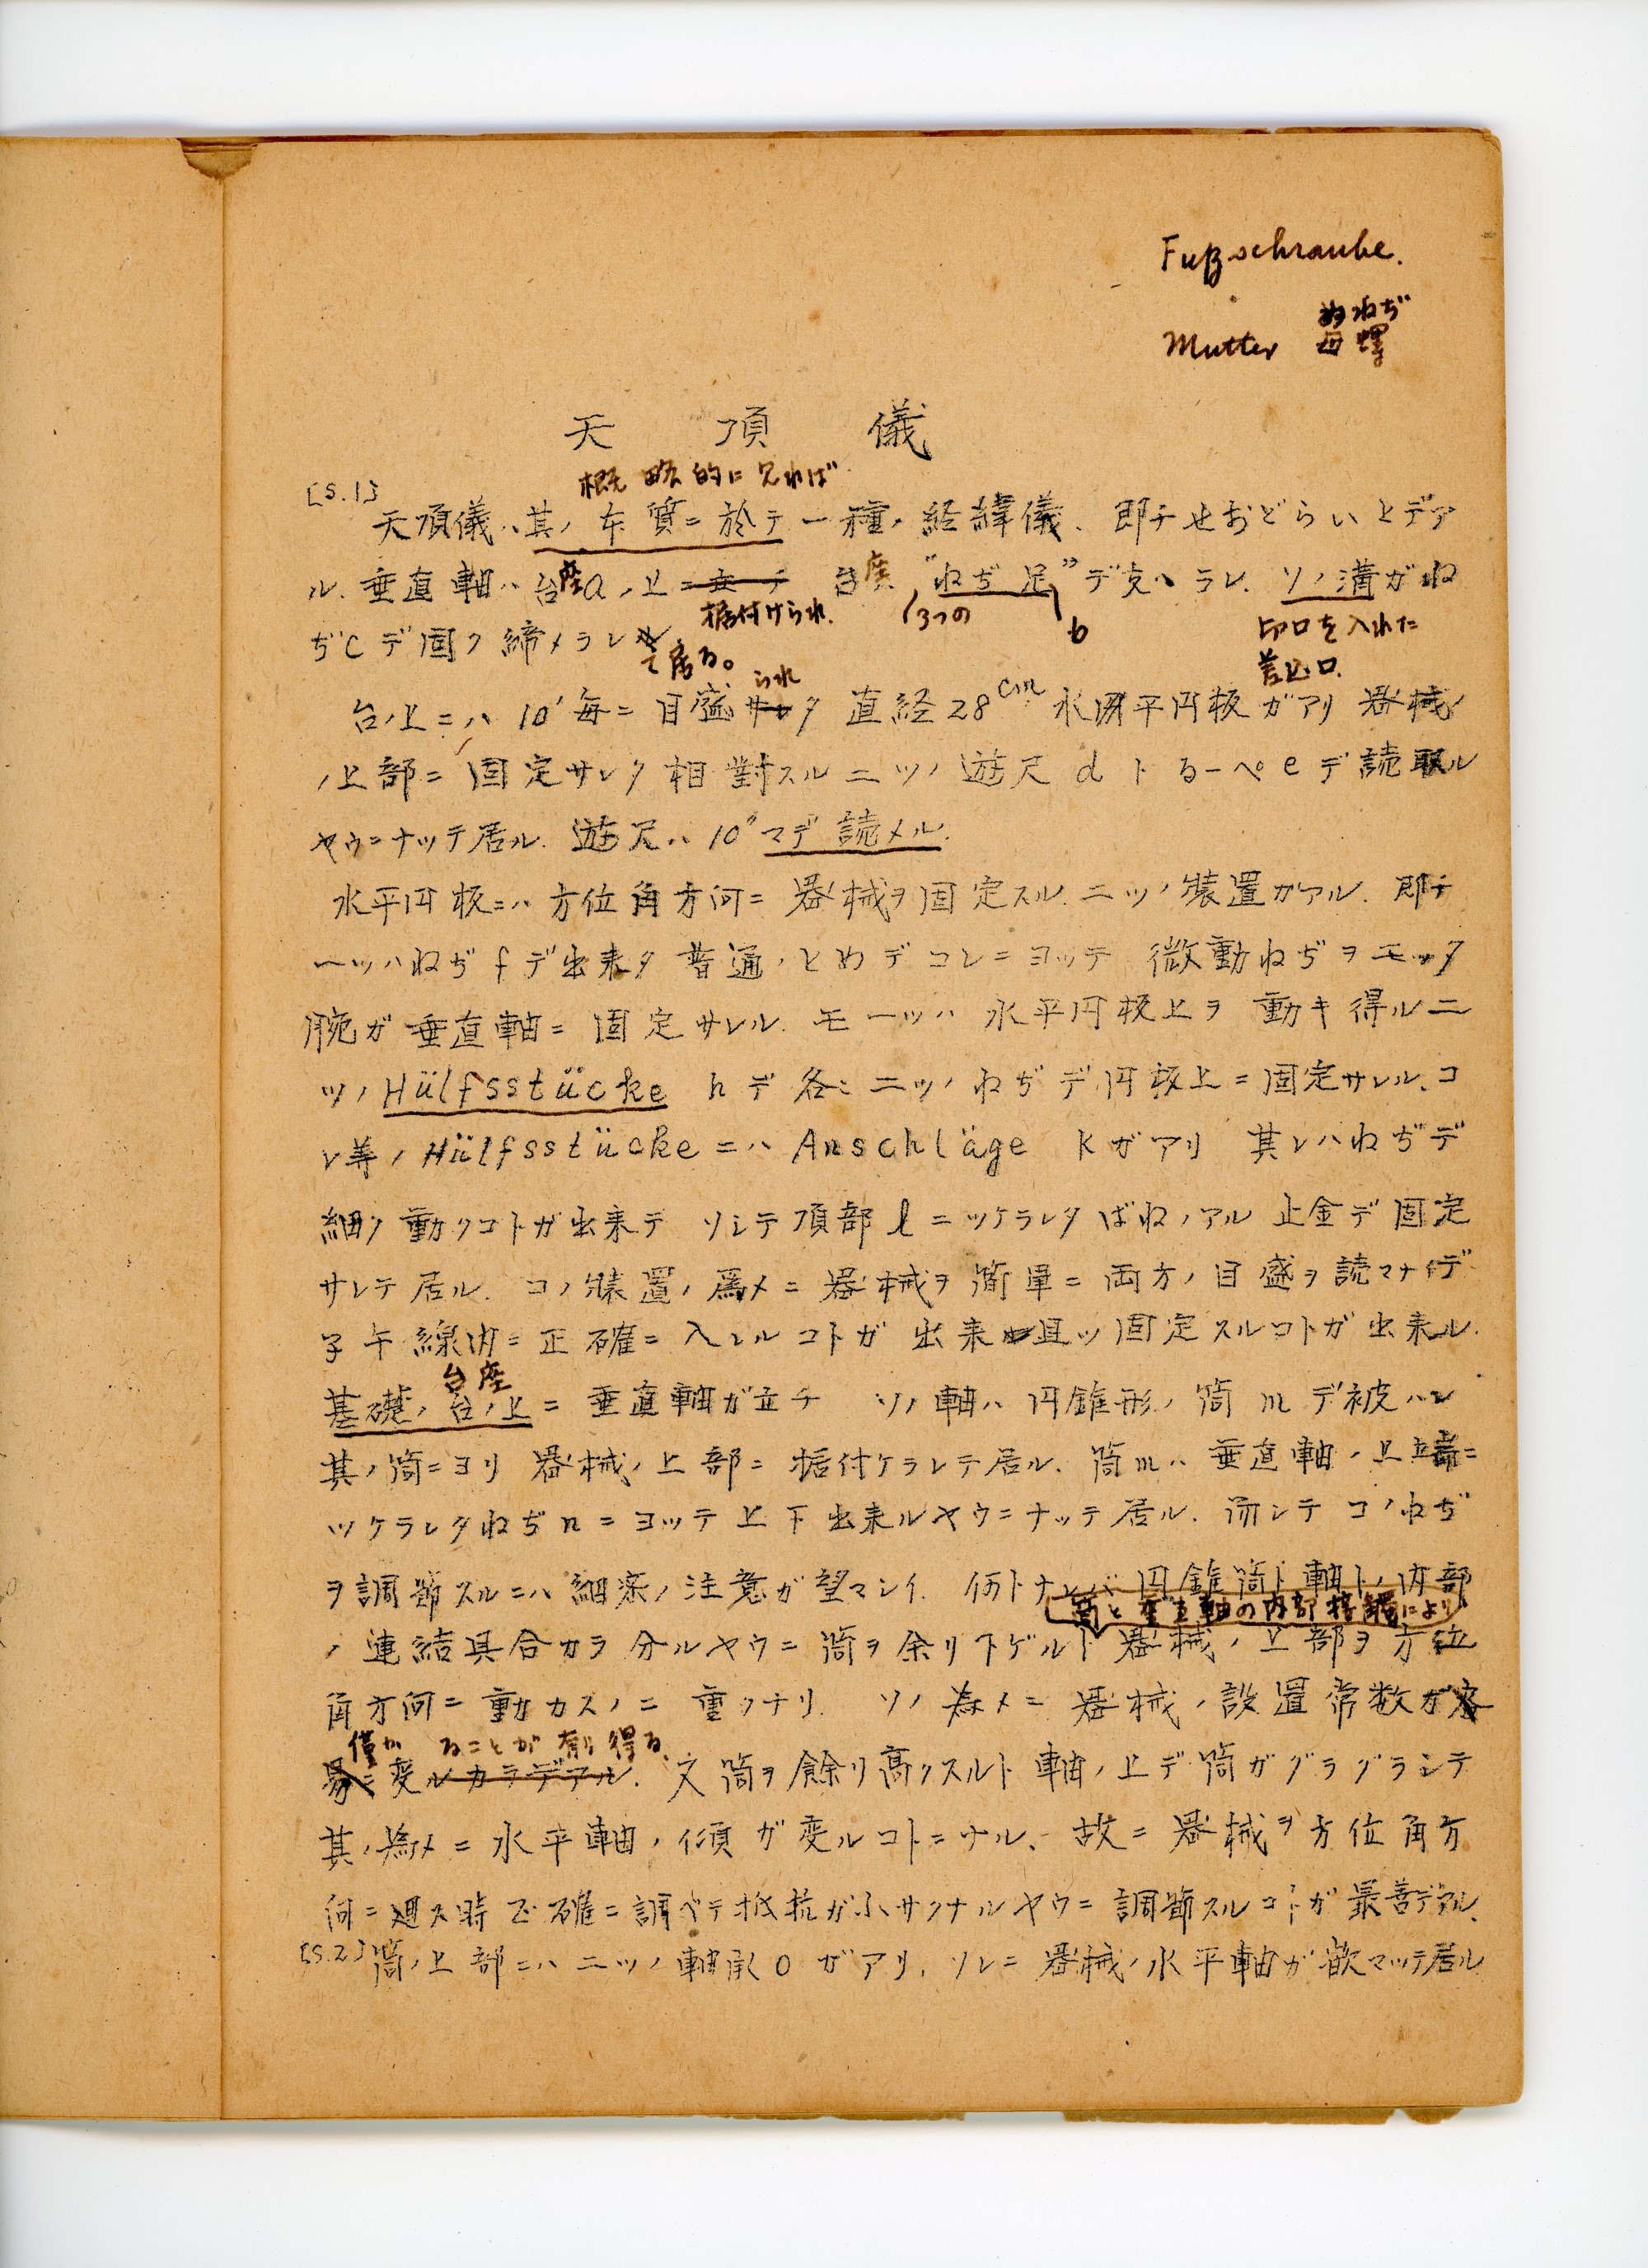 Fußschraube.
めねぢ
Mutter 母螺
天頂儀
概略的に見れば
[S.1]
天頂儀ハ其ノ本質ニ於テ一種ノ経緯儀、即チせおどらいとデア
ル. 垂直軸ハ台座a ノ上ニ立チ 台座ハ "ねぢ足" デ支ヘラレ. ソノ溝ガね
据付けられ. (3つの b 印口を入れた
ぢCデ固ク締メラレ
て居る。 差込口.
られ
台ノ上ニハ 10′毎ニ目盛サレタ 直経28cm 水平円板ガアリ 器械
ノ上部ニ固定サレタ相對スル二ツノ遊尺 d トるーぺ e デ読取ル
ヤウニナッテ居ル. 遊尺ハ 10″マデ読メル.
水平円板ニハ方位角方向ニ器械ヲ固定スル二ツノ装置ガアル. 即チ
一ツハねぢ f デ出来タ普通ノとめデコレニヨッテ 微動ねぢヲモッタ
腕ガ垂直軸ニ固定サレル. モ一ツハ 水平円板上ヲ動キ得ル二
ツノ Hülfsstücke h デ各々二ツノねぢデ円板上ニ固定サレル. コ
レ等ノ Hülfsstücke ニハ Anschläge k ガアリ 其レハねぢデ
細ク動クコトガ出来テ ソシテ頂部 l ニツケラレタばねノアル止金デ固定
サレテ居ル. コノ装置ノ爲メニ器械ヲ簡単ニ両方ノ目盛ヲ読マナイデ
子午線内ニ正確ニ入レルコトガ出来且ツ固定スルコトガ出来ル.
台座
基礎ノ台ノ上ニ垂直軸ガ立チ ソノ軸ハ円錐形ノ筒 m デ被ハレ
其ノ筒ニヨリ器械ノ上部ニ据付ケラレテ居ル. 筒 m ハ垂直軸ノ上端ニ
ツケラレタねぢ n ニヨッテ上下出来ルヤウニナッテ居ル. 而シテコノねぢ
ヲ調節スルニハ細深ノ注意ガ望マシイ. 何トナレバ円錐筒ト軸トノ内部
筒と垂直軸の内部接觸により
ノ連結具合カラ分ルヤウニ筒ヲ余リ下ゲルト器械ノ上部ヲ方位
角方向ニ動カスノニ重クナリ. ソノ為メニ器械ノ設置常数ガ容
僅か ることが有り得る.
易ニ変ルカラデアル. 又筒ヲ餘リ高クスルト軸ノ上デ筒ガグラグラシテ
其ノ為メニ水平軸ノ傾ガ変ルコトニナル. 故ニ器械ヲ方位角方
向ニ廻ス時正確ニ調ベテ抵抗ガ小サクナルヤウニ調節スルコトガ最善デアル.
[S.2] 筒ノ上部ニハ二ツノ軸承 o ガアリ. ソレニ器械ノ水平軸ガ歛マッテ居ル